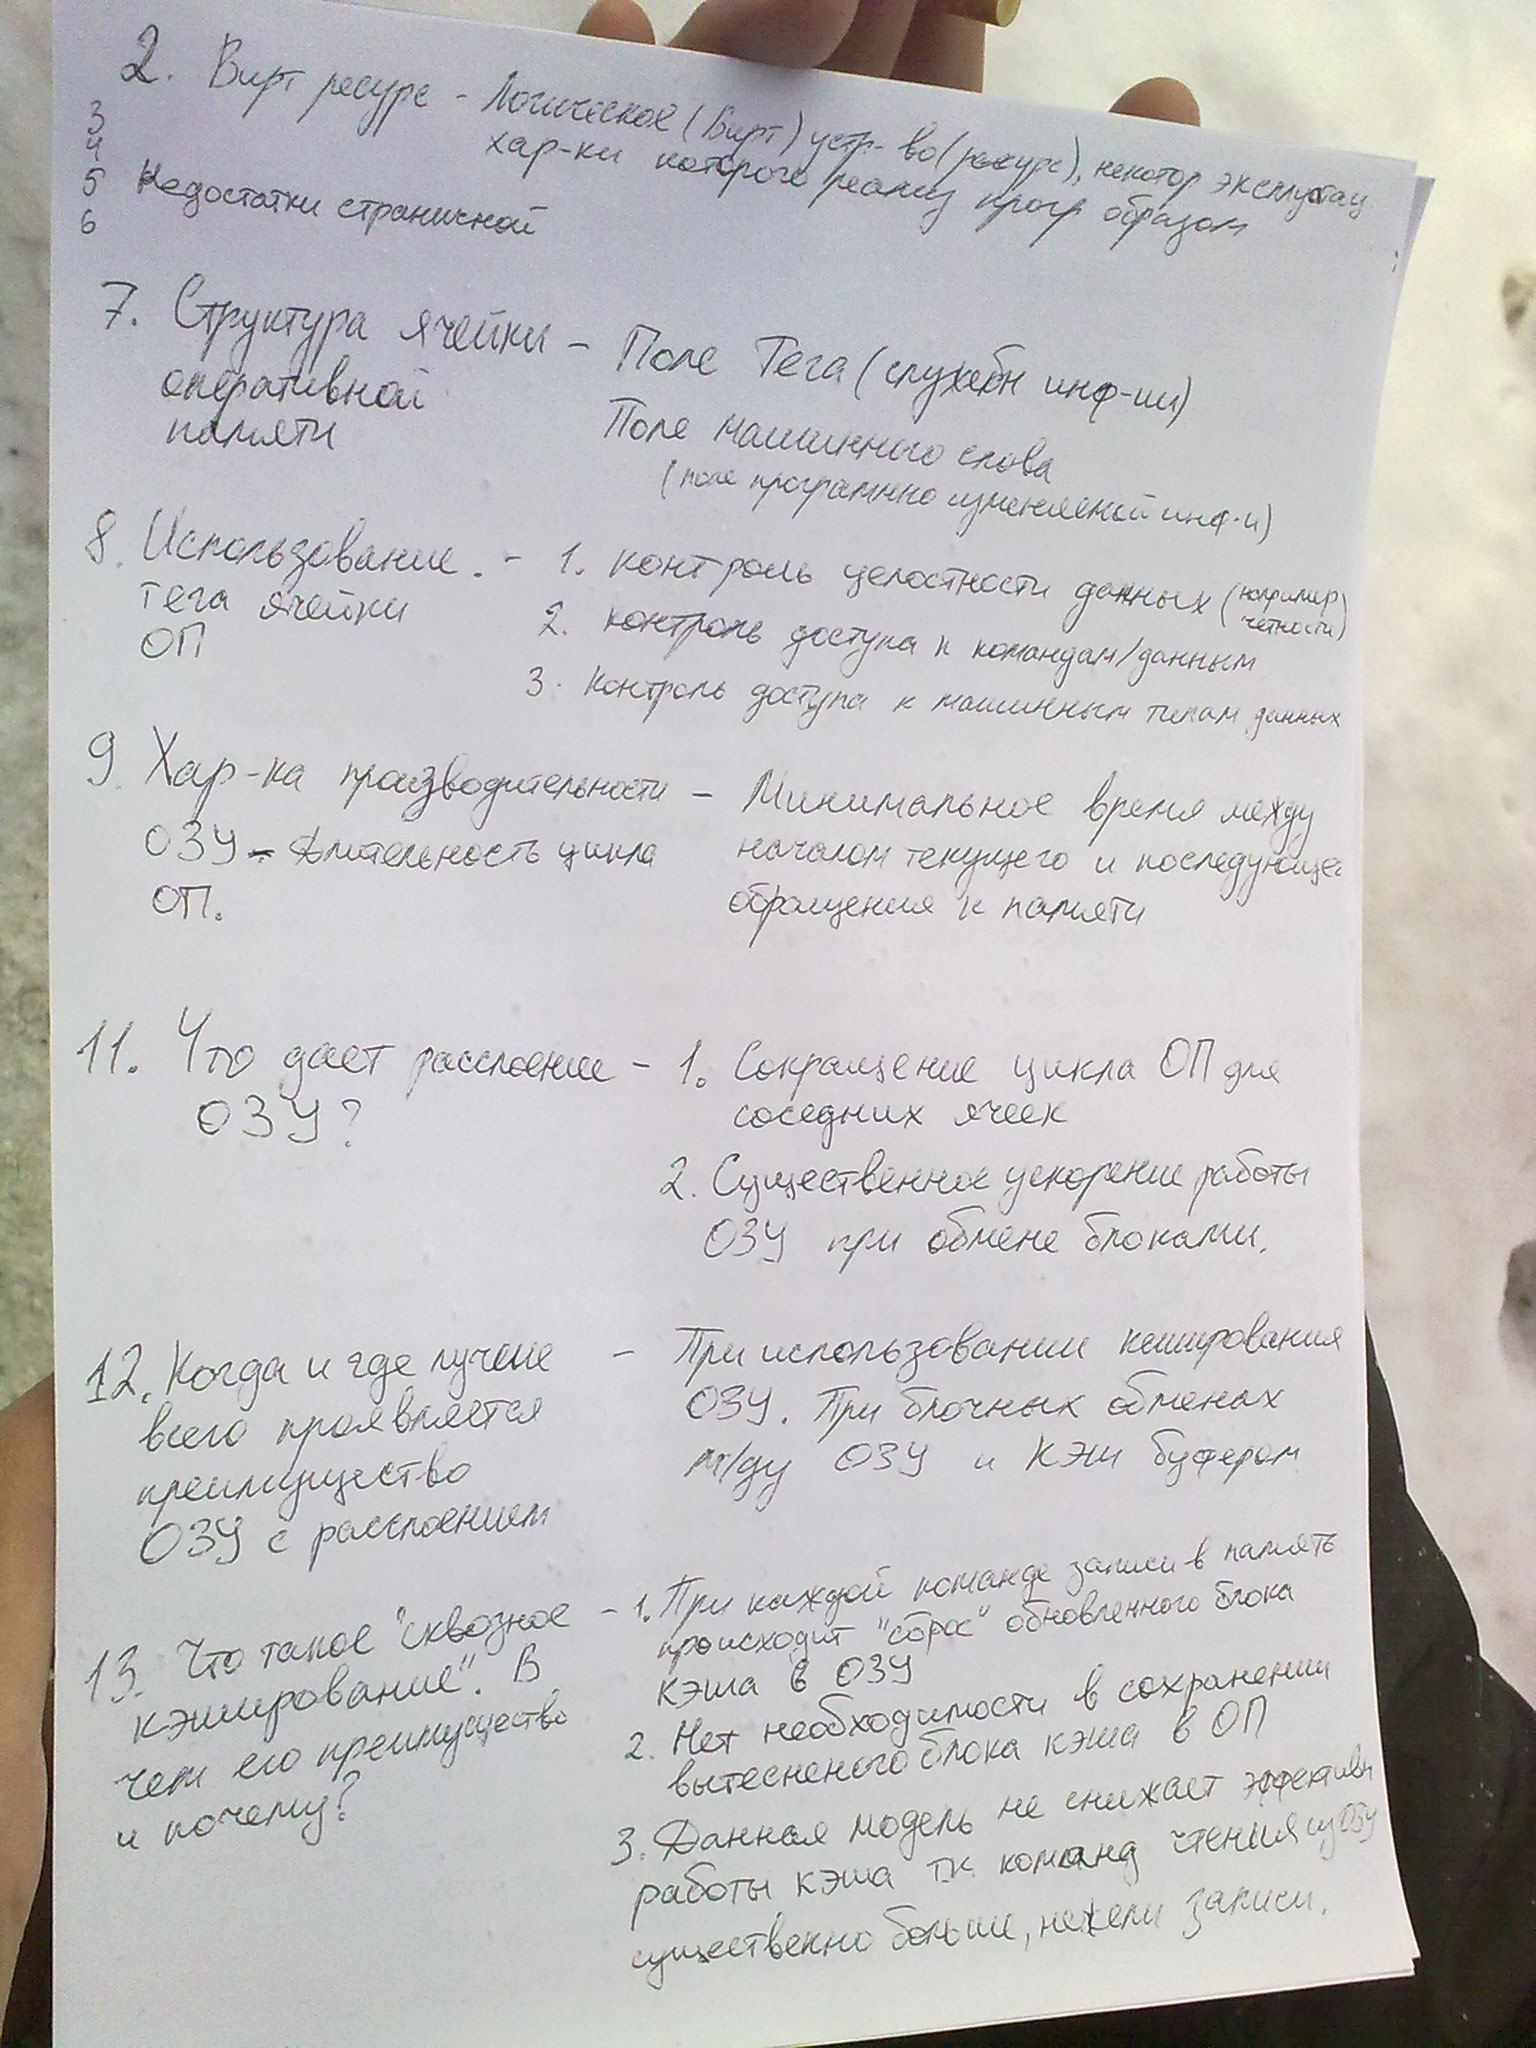 2. Вирт ресурс - Логическое (Вирт) устр-во (ресурс), некотор эксплуатац
хар-ки которого реализ прогр образом
3
4
5 Недостатки страничной
6
7. Структура ячейки - Поле Тега (служебн инф-ии)
оперативной
памяти
Поле машинного слова
(поле програмно изменяемой инф-и)
8. Использование. - 1. контроль целостности данных (например
четности)
тега ячейки
ОП
2. контроль доступа к командам/данным
3. Контроль доступа к машинным типам данных
9. Хар-ка производительности - Минимальное время между
ОЗУ - Длительность цикла началом текущего и последующе
ОП. обращения к памяти
11. Что дает расслоение - 1. Сокращение цикла ОП для
ОЗУ? соседних ячеек
2. Существенное ускорение работы
ОЗУ при обмене блоками.
12. Когда и где лучше - При использовании кеширования
всего проявляется ОЗУ. При блочных обменах
преимущество м/ду ОЗУ и КЭШ буфером
ОЗУ с расслоением
13. Что такое "сквозное - 1. При каждой команде записи в память
кэширование". В происходит "сброс" обновленного блока
чем его преимущество кэша в ОЗУ
и почему?
2. Нет необходимости в сохранении
вытесненого блока кэша в ОП
3. Данная модель не снижает эффективн
работы кэша т.к. команд чтения из ОЗУ
существенно больше, нежели записи.